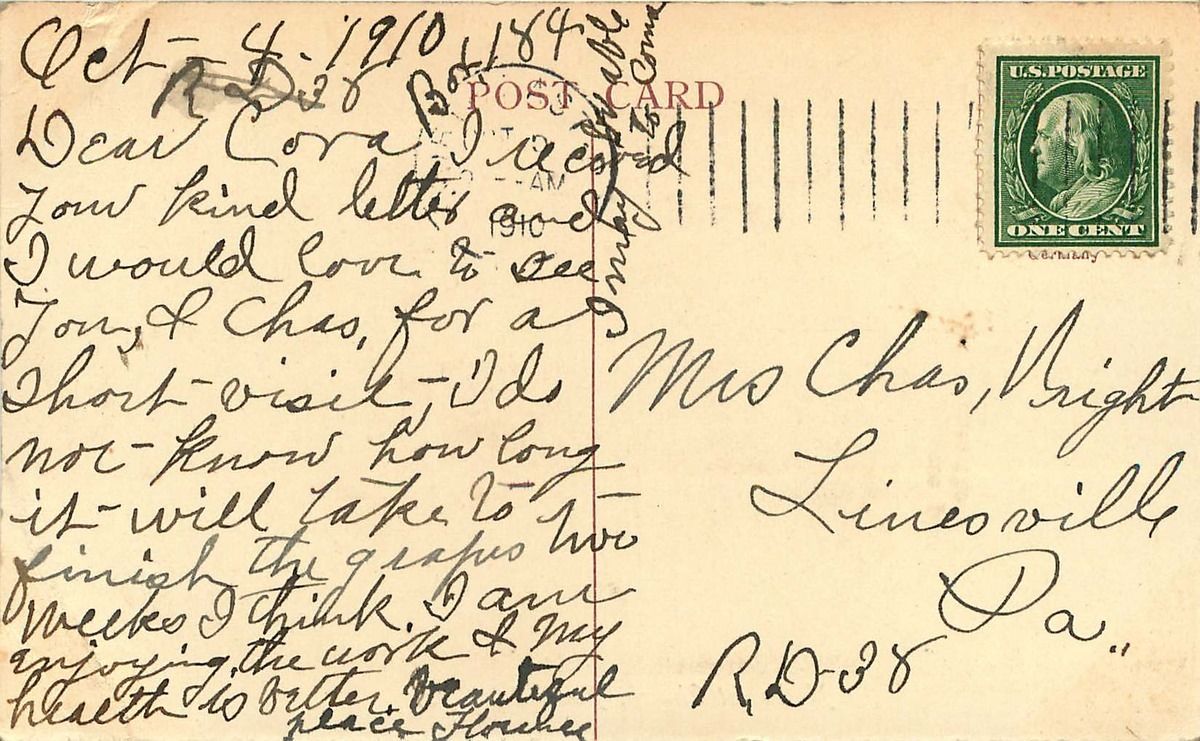 Oct - 4. 1910
R D 38
Box 184
Dear Cora I received
your kind letter and
I would love to see
you, & Chas, for a
short visit, I do
not know how long
it will take to
finish the grapes two
weeks I think. I am
enjoying the work & my
health is better. Beautiful
place Florence
I may be able
to come
POST CARD
AM
1910
U.S. POSTAGE
ONE CENT
Germany
Mrs Chas, Bright
Linesville
Pa,,
R.D-38